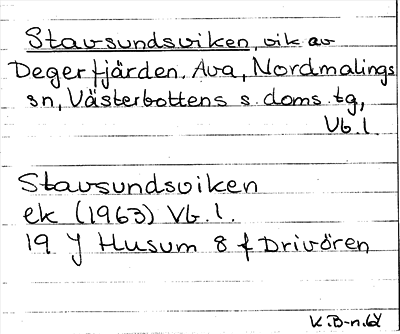 Stavsundsviken, vik av
Degerfjärden. Ava, Nordmalings
sn, Västerbottens s. doms. tg,
Vb. l.
Stavsundsviken
ek (1963) Vb. l.
19 J Husum 8 f Drivören
K.B-n.62